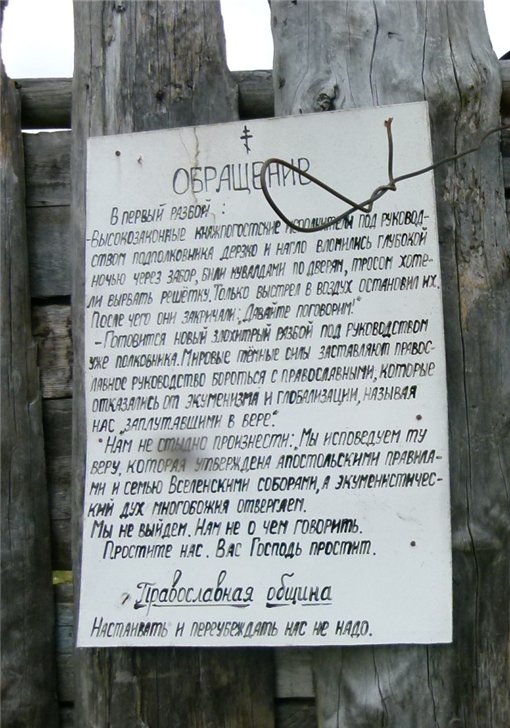 ОБРАЩЕНИЕ
В первый разбой:
-Высокозаконные княжпогостские исполнители под руковод-
ством подполковника дерзко и нагло вломились глубокой
ночью через забор, били кувалдами по дверям, тросом хоте-
ли вырвать решётку. Только выстрел в воздух остановил их.
После чего они закричали: „Давайте поговорим!"
- Готовится новый злохитрый разбой под руководством
уже полковника. Мировые тёмные силы заставляют правос-
лавное руководство бороться с православными, которые
отказались от экуменизма и глобализации, называя
нас „заплутавшими в вере".
"Нам не стыдно произнести: „Мы исповедуем ту
веру, которая утверждена апостольскими правила-
ми и семью Вселенскими соборами, а экуменистичес-
кий дух многобожия отвергаем.
Мы не выйдем. Нам не о чем говорить.
Простите нас. Вас Господь простит.
Православная община
Настаивать и переубеждать нас не надо.